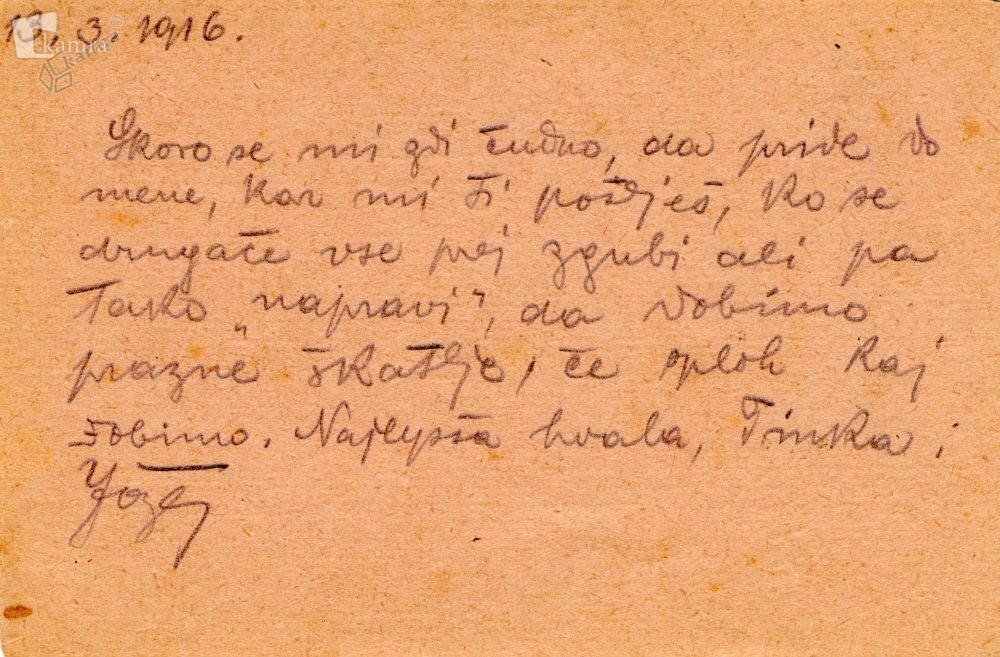 13. 3. 1916.
kamra
Skoro se mi zdi čudno, da pride do
mene, kar mi Ti pošlješ, ko se
drugače vse prej zgubi ali pa
tako „napravi", da dobimo
prazne škatlje, če sploh kaj
dobimo. Najlepša hvala, Tinka!
Jože